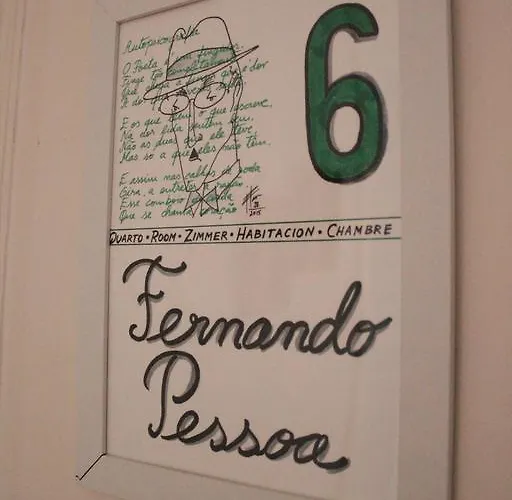 Autopsicografia
O Poeta é um fingidor.
Finge tão completamente
Que chega a fingir que é dor
A dor que deveras sente.
E os que leem o que escreve,
Na dor lida sentem bem,
Não as duas que ele teve,
Mas só a que eles não têm.
E assim nas calhas de roda
Gira, a entreter a razão,
Esse comboio de corda
Que se chama coração
2015
6
QUARTO • ROOM • ZIMMER • HABITACION • CHAMBRE
Fernando
Pessoa